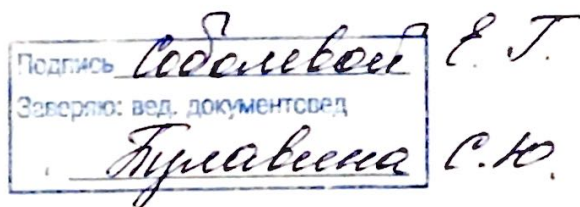 Подпись Соболевой Е. Г.
Заверяю: вед. документовед
Тулавина С.Ю.